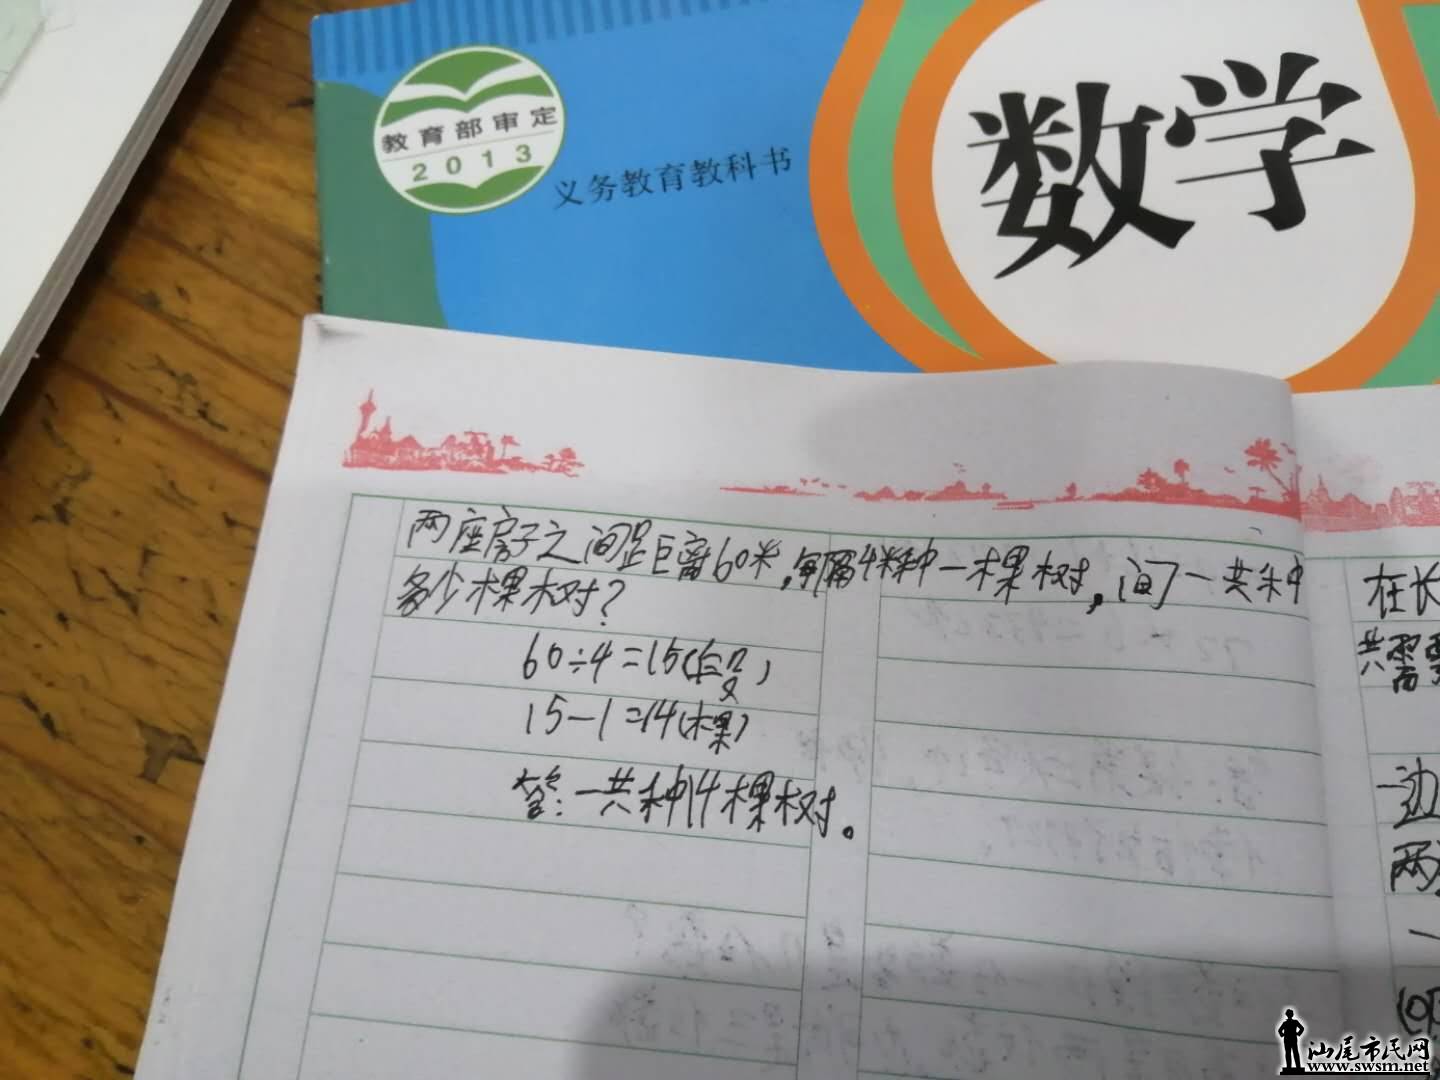 教育部审定
2013
义务教育教科书
数学
两座房子之间距离60米,每隔4米种一棵树,问一共种
多少棵树?
60÷4=15(段)
15-1=14(棵)
答:一共种14棵树。
在长
共需要
一边
两
一
汕尾市民网
www.swsm.net